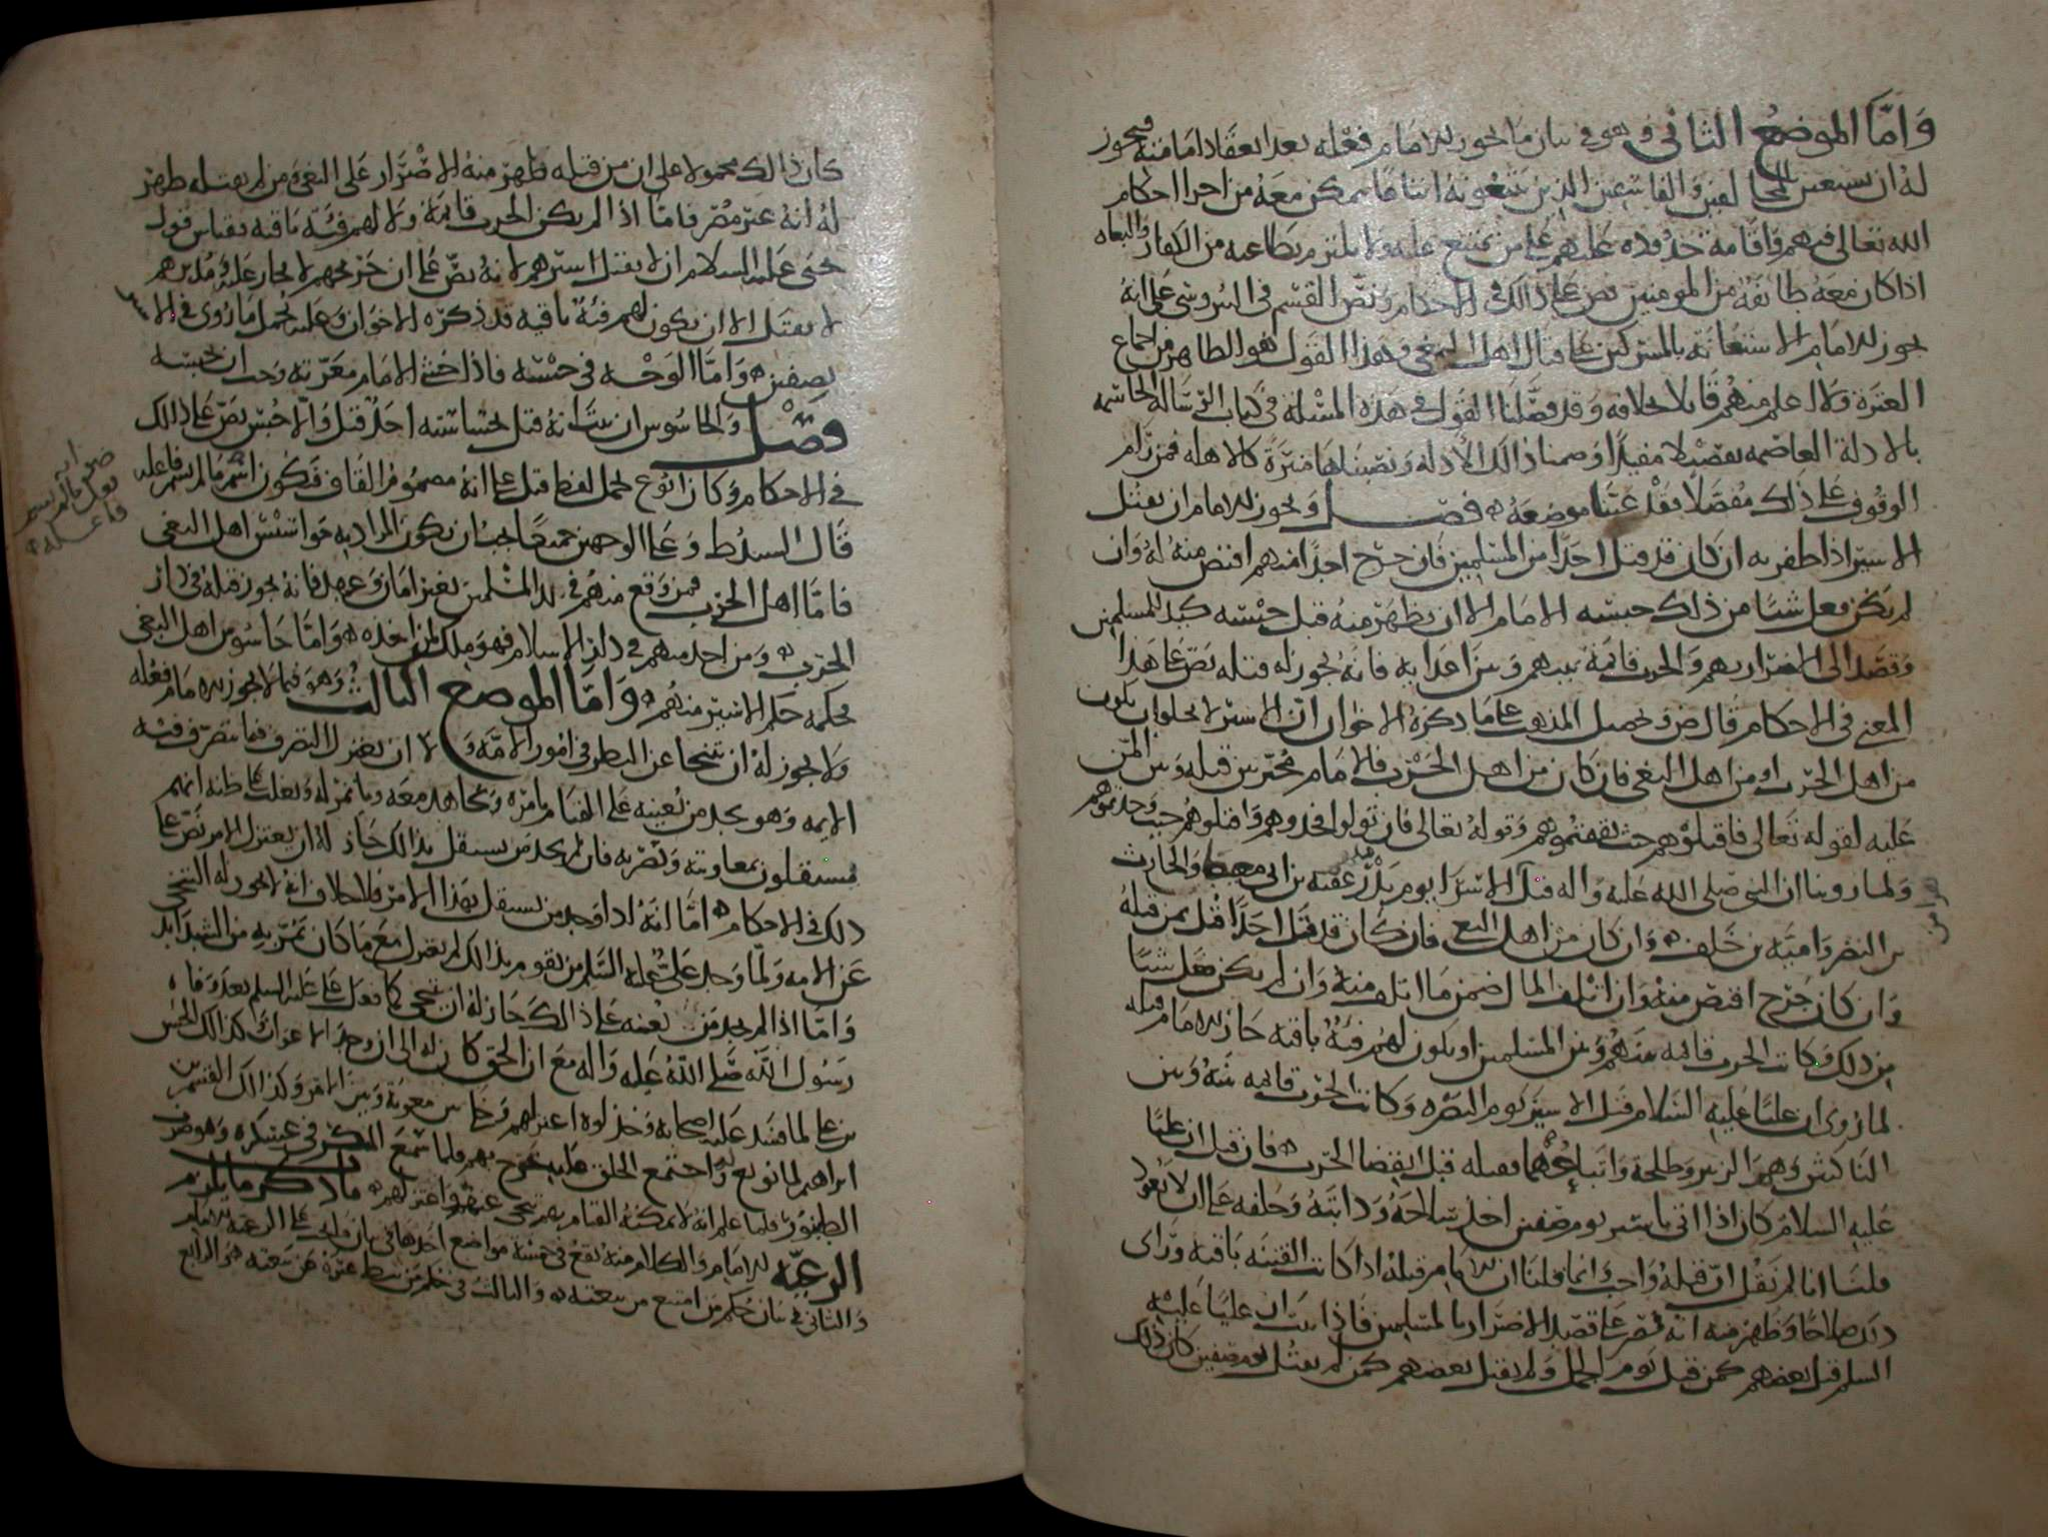 وَامّا الموضع الثاني وهو في بيان ما يجوز للامام فعله بعد انعقاد امامته فيجوز
له ان يستعين بالمخالفين والفاسقين الذين يتبعونه اتباعا يتمكن معه من اجرا احكام
الله تعالى فيهم واقامة حدوده عليهم على من يمتنع عليه ولا يلتزم بطاعته من الكفار والبغاه
اذا كان معه طائفة من المومنين نص على ذلك في الاحكام ونص القسم في النيروسي على انه
يجوز للامام الاستعانة بالمشركين على قتال اهل البغي وهذا القول هو الظاهر من اجماع
العترة ولا اعلم منهم قايلا بخلافه وقد فصّلنا القول في هذه المسئلة في كتاب الرسالة الحاسمه
بالادلة العاصمه تفصيلا مفيدا وضمنا ذلك الأدلة ونصبناها منيرة كالاهله فمن رام
الوقوف على ذلك مفصلا فقد عينا موضعه فصل ويجوز للامام ان يقتل
الاسير اذا ظفر به ان كان قد قتل احدا من المسلمين فان جرح احدا منهم اقتص منه له وان
لم يكن فعل شيا من ذلك حبسه الامام الا ان يظهر منه قبل حبسه كيد للمسلمين
وقصد الى الاضرار بهم والحرب قائمة بينهم وبين اعدايه فانه يجوز له قتله نص على هذا
المعنى في الاحكام قال ض وتحصيل المذهب على ما ذكره الاخوان ان الاسير لا يخلو ان يكون
من اهل الحرب او من اهل البغي فان كان من اهل الحرب فالامام مخير بين قتله وبين المن
عليه لقوله تعالى فاقتلوهم حيث ثقفتموهم وقوله تعالى فان تولوا فخذوهم واقتلوهم حيث وجدتموهم
ولما روينا ان النبي صلى الله عليه واله قتل الاسرا يوم بدر عقبة بن ابي معيط والحارث
بن النضر وامية بن خلف وان كان من اهل البغي فان كان قد قتل احدا قتل بمن قتله
وان كان جرح اقتص منه وان اتلف المال ضمن ما اتلف منه وان لم يكن فعل شيا
من ذلك وكانت الحرب قائمه بينهم وبين المسلمين او يكون لهم فئة باقية جاز للامام قتله
لما روي ان عليا عليه السلام قتل الاسير يوم البصره وكانت الحرب قائمه بينه وبين
الناكثين وهم الزبير وطلحة واتباعهما فقتله قبل انقضا الحرب فان قيل ان عليا
عليه السلام كان اذا اتي باسير يوم صفين اخذ سلاحه ودابته وحلفه على ان لا يعود
قلنا انا لم نقل ان قتله واجب وانما قلنا ان للامام قتله اذا كانت الفتنه باقية وراى
ذلك صلاحا وظهر منه انه مصر على قصد الاضرار بالمسلمين فاذا ثبت ان عليا عليه
السلم قتل بعضهم كمن قتل يوم الجمل ولم يقتل بعضهم كمن لم يقتل يوم صفين كان ذلك
كان ذلك محمولا على ان من قتله ظهر منه الاضرار على البغي ومن لم يقتله ظهر
له انه غير مضر فاما اذا لم يكن الحرب قائمة ولا لهم فئة باقية فقياس قول
يحيى عليه السلام ان لا يقتل اسيرهم لانه نص على ان جريحهم لا يجاز عليه ومدبرهم
لا يقتل الا ان يكون لهم فئة باقية قد ذكره الاخوان وعليه يحمل ما روي في الاسير
بصفين وامّا الوجه في حبسه فاذا خشي الامام معرته وجب ان يحبسه
فصل والجاسوس ان ثبت انه قتل بجساسته احد قتل والا حبس نص على ذلك
في الاحكام وكان ابوع يحمل لفظ قتل على انه مضموم القاف فيكون اسم ما لم يسم فاعله
قال السيد ط وعلى الوجهين جميعا يجب ان يكون المراد به جواسيس اهل البغي
فامّا اهل الحرب فمن وقع منهم في بلد المسلمين بغير امان وعهد فانه يجوز قتله في دار
الحرب ومن اخذ منهم في دار الاسلام فهو ملك لمن اخذه وامّا جاسوس اهل البغي
فحكمه حكم الاسير منهم وَامّا الموضع الثالث وهو فيما لا يجوز للامام فعله
ولا يجوز له ان يتنحا عن النظر في امور الامّة ولا ان يعتزل التصرف فيما يتصرف فيه
الايمه وهو يجد من يعينه على القيام بامره ويجاهد معه وياتمر له ويغلب على ظنه انهم
يستقلون بمعاونته ونصرته فان لم يجد من يستقل بذلك جاز له ان يعتزل الامر نص على
ذلك في الاحكام امّا انه اذا وجد من يستقل بهذا الامر فلا خلاف انه لا يجوز له التنحي
عن الامه ولما وجد علي عليه السلم من يقوم بذلك لم يعتزل مع ما كان يمر به من الشدايد
وامّا اذا لم يجد من يعينه على ذلك جاز له ان يتنحى كما فعل علي عليه السلم بعد وفاه
رسول الله صلى الله عليه واله مع ان الحق كان له الى ان وجد الاعوان وكذلك الحسن
بن علي لما فسد عليه اصحابه وخذلوه اعتزلهم وخلا بين معوية وبين الامر وكذلك القسم بن
ابراهيم لما بويع له واجتمع الخلق عليه خرج بهم فلما سمع المنكر في عسكره وهو ضرب
الطنبور فلما علم انه لا يمكنه القيام بهم تنحى عنهم واعتزلهم باب ذكر ما يلزم
الرعيّه للامام والكلام منه يقع في خمسة مواضع احدها في بيان ما يجب على الرعية للامام
والثاني في بيان حكم من امتنع من بيعته والثالث في حكم من يثبط غيره عن بيعته والرابع